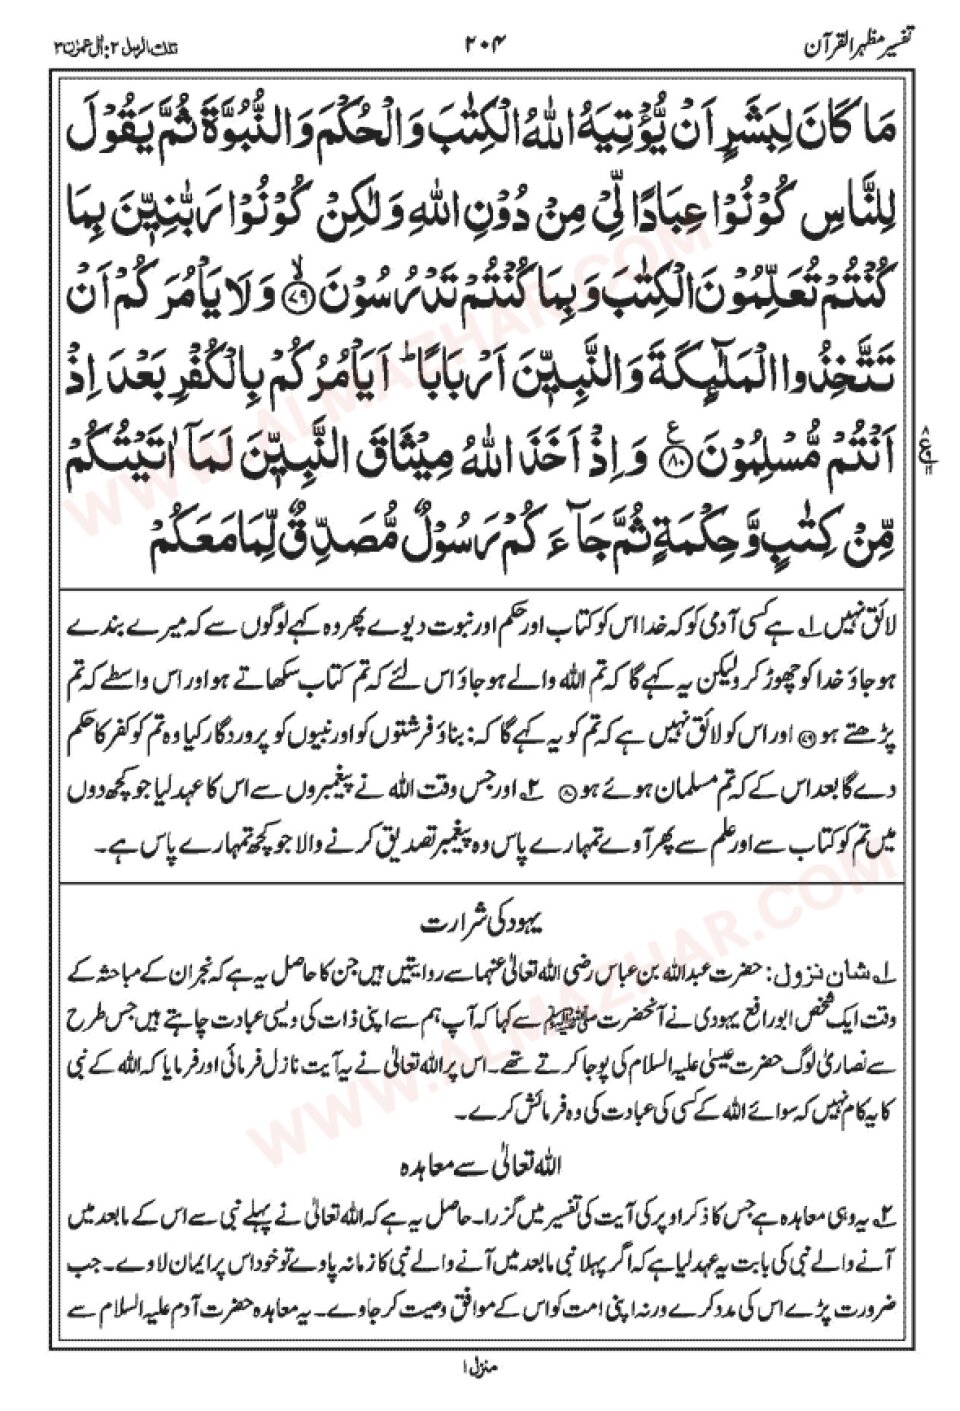 تفسیر مظہر القرآن
۲۰۴
تلک الرسل ۲: اٰل عمرٰن ۳
مَا كَانَ لِبَشَرٍ اَنْ يُّؤْتِيَهُ اللّٰهُ الْكِتٰبَ وَالْحُكْمَ وَالنُّبُوَّةَ ثُمَّ يَقُوْلَ
لِلنَّاسِ كُوْنُوْا عِبَادًا لِّيْ مِنْ دُوْنِ اللّٰهِ وَلٰكِنْ كُوْنُوْا رَبّٰنِيّٖنَ بِمَا
كُنْتُمْ تُعَلِّمُوْنَ الْكِتٰبَ وَبِمَا كُنْتُمْ تَدْرُسُوْنَ ۙ۷۹ وَلَا يَاْمُرَكُمْ اَنْ
تَتَّخِذُوا الْمَلٰٓئِكَةَ وَالنَّبِيّٖنَ اَرْبَابًا ؕ اَيَاْمُرُكُمْ بِالْكُفْرِ بَعْدَ اِذْ
اَنْتُمْ مُّسْلِمُوْنَ ۸۰ع وَاِذْ اَخَذَ اللّٰهُ مِيْثَاقَ النَّبِيّٖنَ لَمَاۤ اٰتَيْتُكُمْ
مِّنْ كِتٰبٍ وَّحِكْمَةٍ ثُمَّ جَآءَكُمْ رَسُوْلٌ مُّصَدِّقٌ لِّمَا مَعَكُمْ
لائق نہیں ۱ ہے کسی آدمی کو کہ خدا اس کو کتاب اور حکم اور نبوت دیوے پھر وہ کہے لوگوں سے کہ میرے بندے
ہو جاؤ خدا کو چھوڑ کر ولیکن یہ کہے گا کہ تم اللہ والے ہو جاؤ اس لئے کہ تم کتاب سکھاتے ہو اور اس واسطے کہ تم
پڑھتے ہو ۷۹ اور اس کو لائق نہیں ہے کہ تم کو یہ کہے گا کہ: بناؤ فرشتوں کو اور نبیوں کو پروردگار کیا وہ تم کو کفر کا حکم
دے گا بعد اس کے کہ تم مسلمان ہوئے ہو ۸۰ ۲ اور جس وقت اللہ نے پیغمبروں سے اس کا عہد لیا جو کچھ دوں
میں تم کو کتاب سے اور علم سے پھر آوے تمہارے پاس وہ پیغمبر تصدیق کرنے والا جو کچھ تمہارے پاس ہے۔
یہود کی شرارت
۱ شان نزول: حضرت عبداللہ بن عباس رضی اللہ تعالیٰ عنہما سے روایتیں ہیں جن کا حاصل یہ ہے کہ نجران کے مباحثہ کے
وقت ایک شخص ابورافع یہودی نے آنحضرت ﷺ سے کہا کہ آپ ہم سے اپنی ذات کی ویسی عبادت چاہتے ہیں جس طرح
سے نصاریٰ لوگ حضرت عیسیٰ علیہ السلام کی پوجا کرتے تھے۔ اس پر اللہ تعالیٰ نے یہ آیت نازل فرمائی اور فرمایا کہ اللہ کے نبی
کا یہ کام نہیں کہ سوائے اللہ کے کسی کی عبادت کی وہ فرمائش کرے۔
اللہ تعالیٰ سے معاہدہ
۲ یہ وہی معاہدہ ہے جس کا ذکر اوپر کی آیت کی تفسیر میں گزرا۔ حاصل یہ ہے کہ اللہ تعالیٰ نے پہلے نبی سے اس کے مابعد میں
آنے والے نبی کی بابت یہ عہد لیا ہے کہ اگر پہلا نبی مابعد میں آنے والے نبی کا زمانہ پاوے تو خود اس پر ایمان لاوے۔ جب
ضرورت پڑے اس کی مدد کرے ورنہ اپنی امت کو اس کے موافق وصیت کر جاوے۔ یہ معاہدہ حضرت آدم علیہ السلام سے
منزل ۱
WWW.ALMAZHAR.COM
WWW.ALMAZHAR.COM